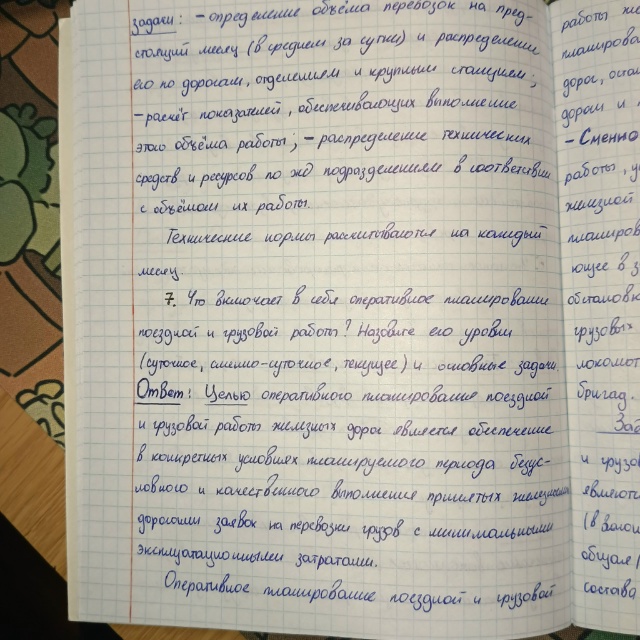 задачи: - определение объёма перевозок на пред-
стоящий месяц (в среднем за сутки) и распределение
его по дорогам, отделениям и крупным станциям;
- расчёт показателей, обеспечивающих выполнение
этого объёма работы; - распределение технических
средств и ресурсов по жд подразделениям в соответствии
с объёмом их работы.
Технические нормы рассчитываются на каждый
месяц.
7. Что включает в себя оперативное планирование
поездной и грузовой работы? Назовите его уровни
(суточное, сменно-суточное, текущее) и основные задачи.
Ответ: Целью оперативного планирования поездной
и грузовой работы железных дорог является обеспечение
в конкретных условиях планируемого периода безус-
ловного и качественного выполнения принятых железными
дорогами заявок на перевозки грузов с минимальными
эксплуатационными затратами.
Оперативное планирование поездной и грузовой
работы
планирова
дорог,
дорам и
- Сменно
работы, у
железной
планиров
ющее в з
обстановк
грузовых
локомот
бригад.
Зад
и грузо
являютс
(в
общая
состава